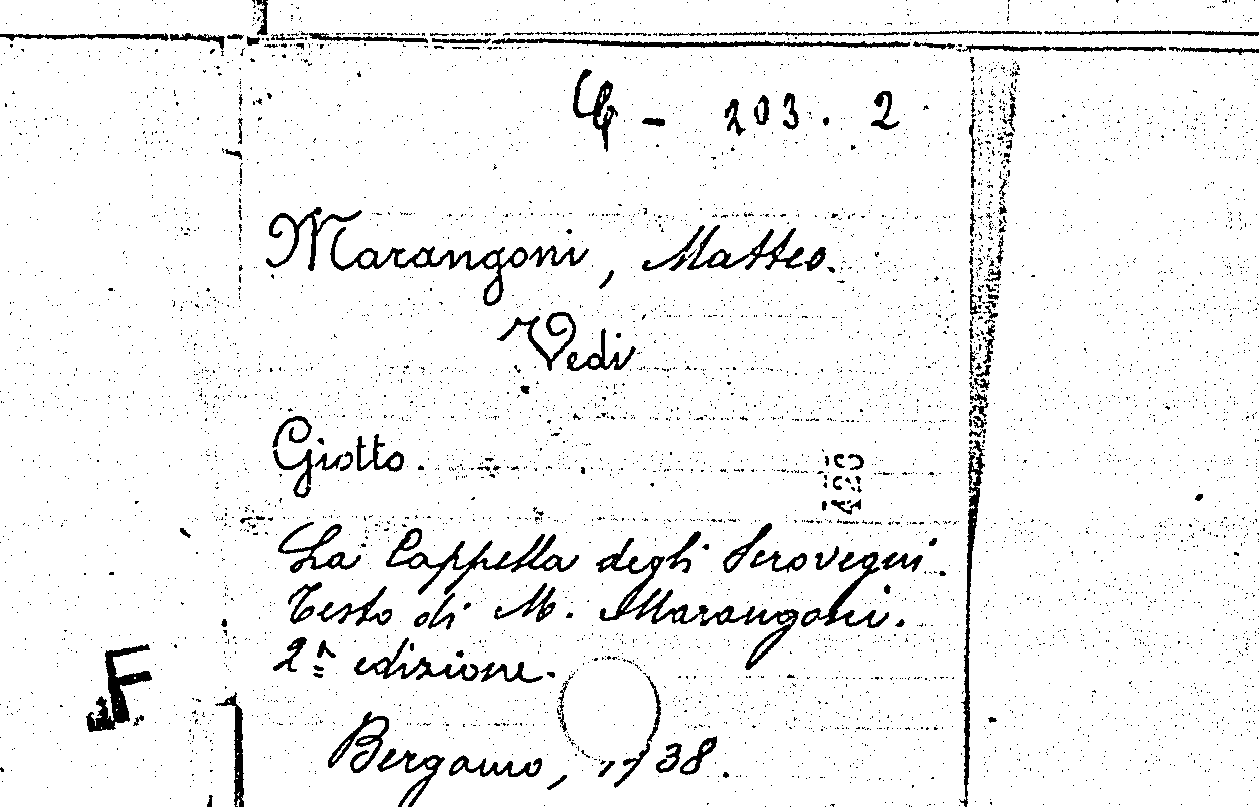 - 203. 2
Marangoni, Matteo.
Vedi
Giotto.
La Cappella degli Scrovegni.
Testo di M. Marangoni.
2ª edizione.
F
Bergamo, 1938.